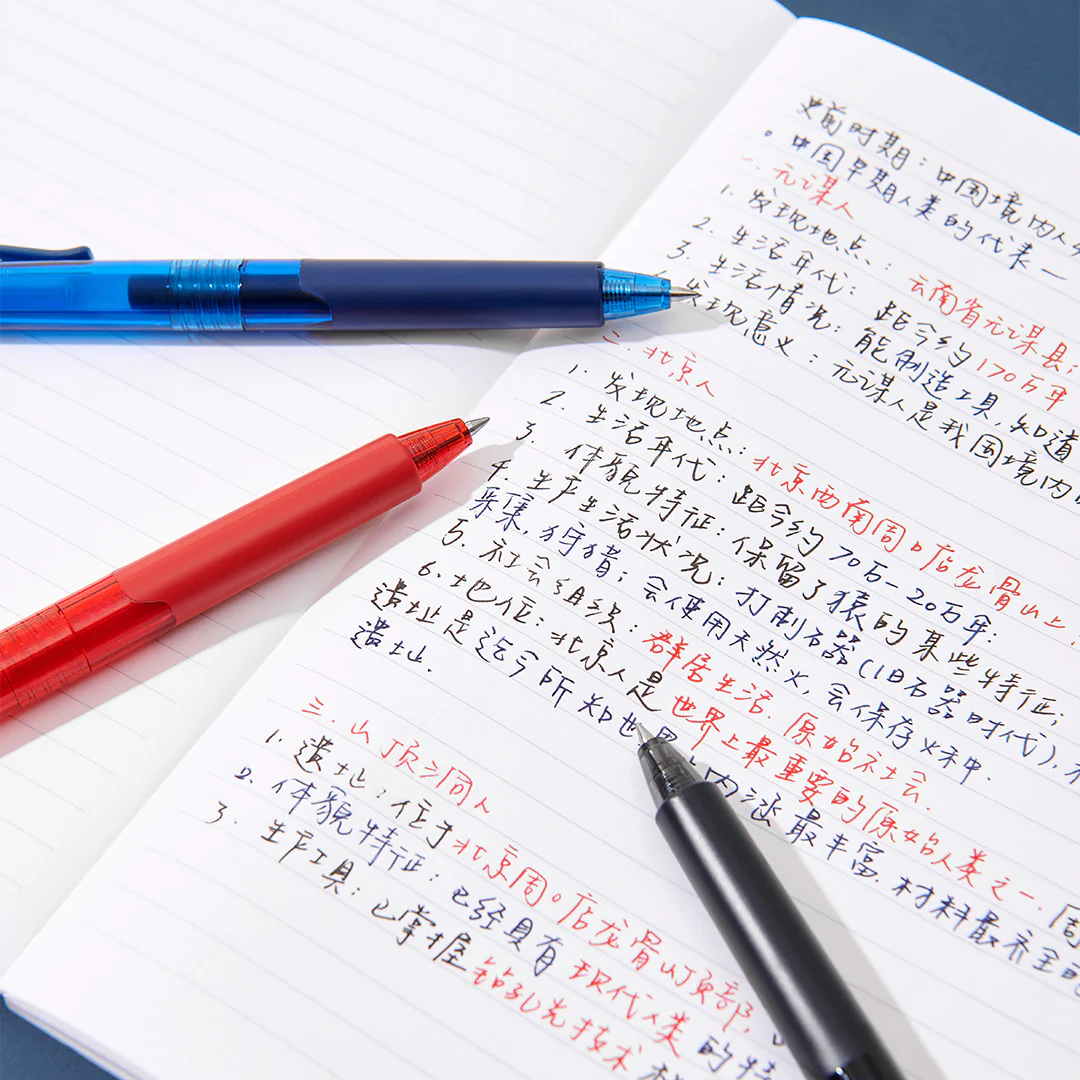 史前时期：中国境内人
。中国早期人类的代表一
一.元谋人
1.发现地点：云南省元谋县；
2.生活年代：距今约170万年
3.生活情况：能制造工具,知道
发现意义：元谋人是我国境内
二.北京人
1.发现地点：北京西南周口店龙骨山上；
2.生活年代：距今约70万—20万年；
3.体貌特征：保留了猿的某些特征；
4.生产生活状况：打制石器(旧石器时代),
采集,狩猎；会使用天然火,会保存火种.
5.社会组织：群居生活.原始社会.
6.地位：北京人是世界上最重要的原始人类之一.周
遗址是迄今所知世界 内涵最丰富.材料最齐全的
遗址.
三.山顶洞人
1.遗址：位于北京周口店龙骨山顶部,
2.体貌特征：已经具有现代人类的特
3.生产工具：已掌握钻孔光技术